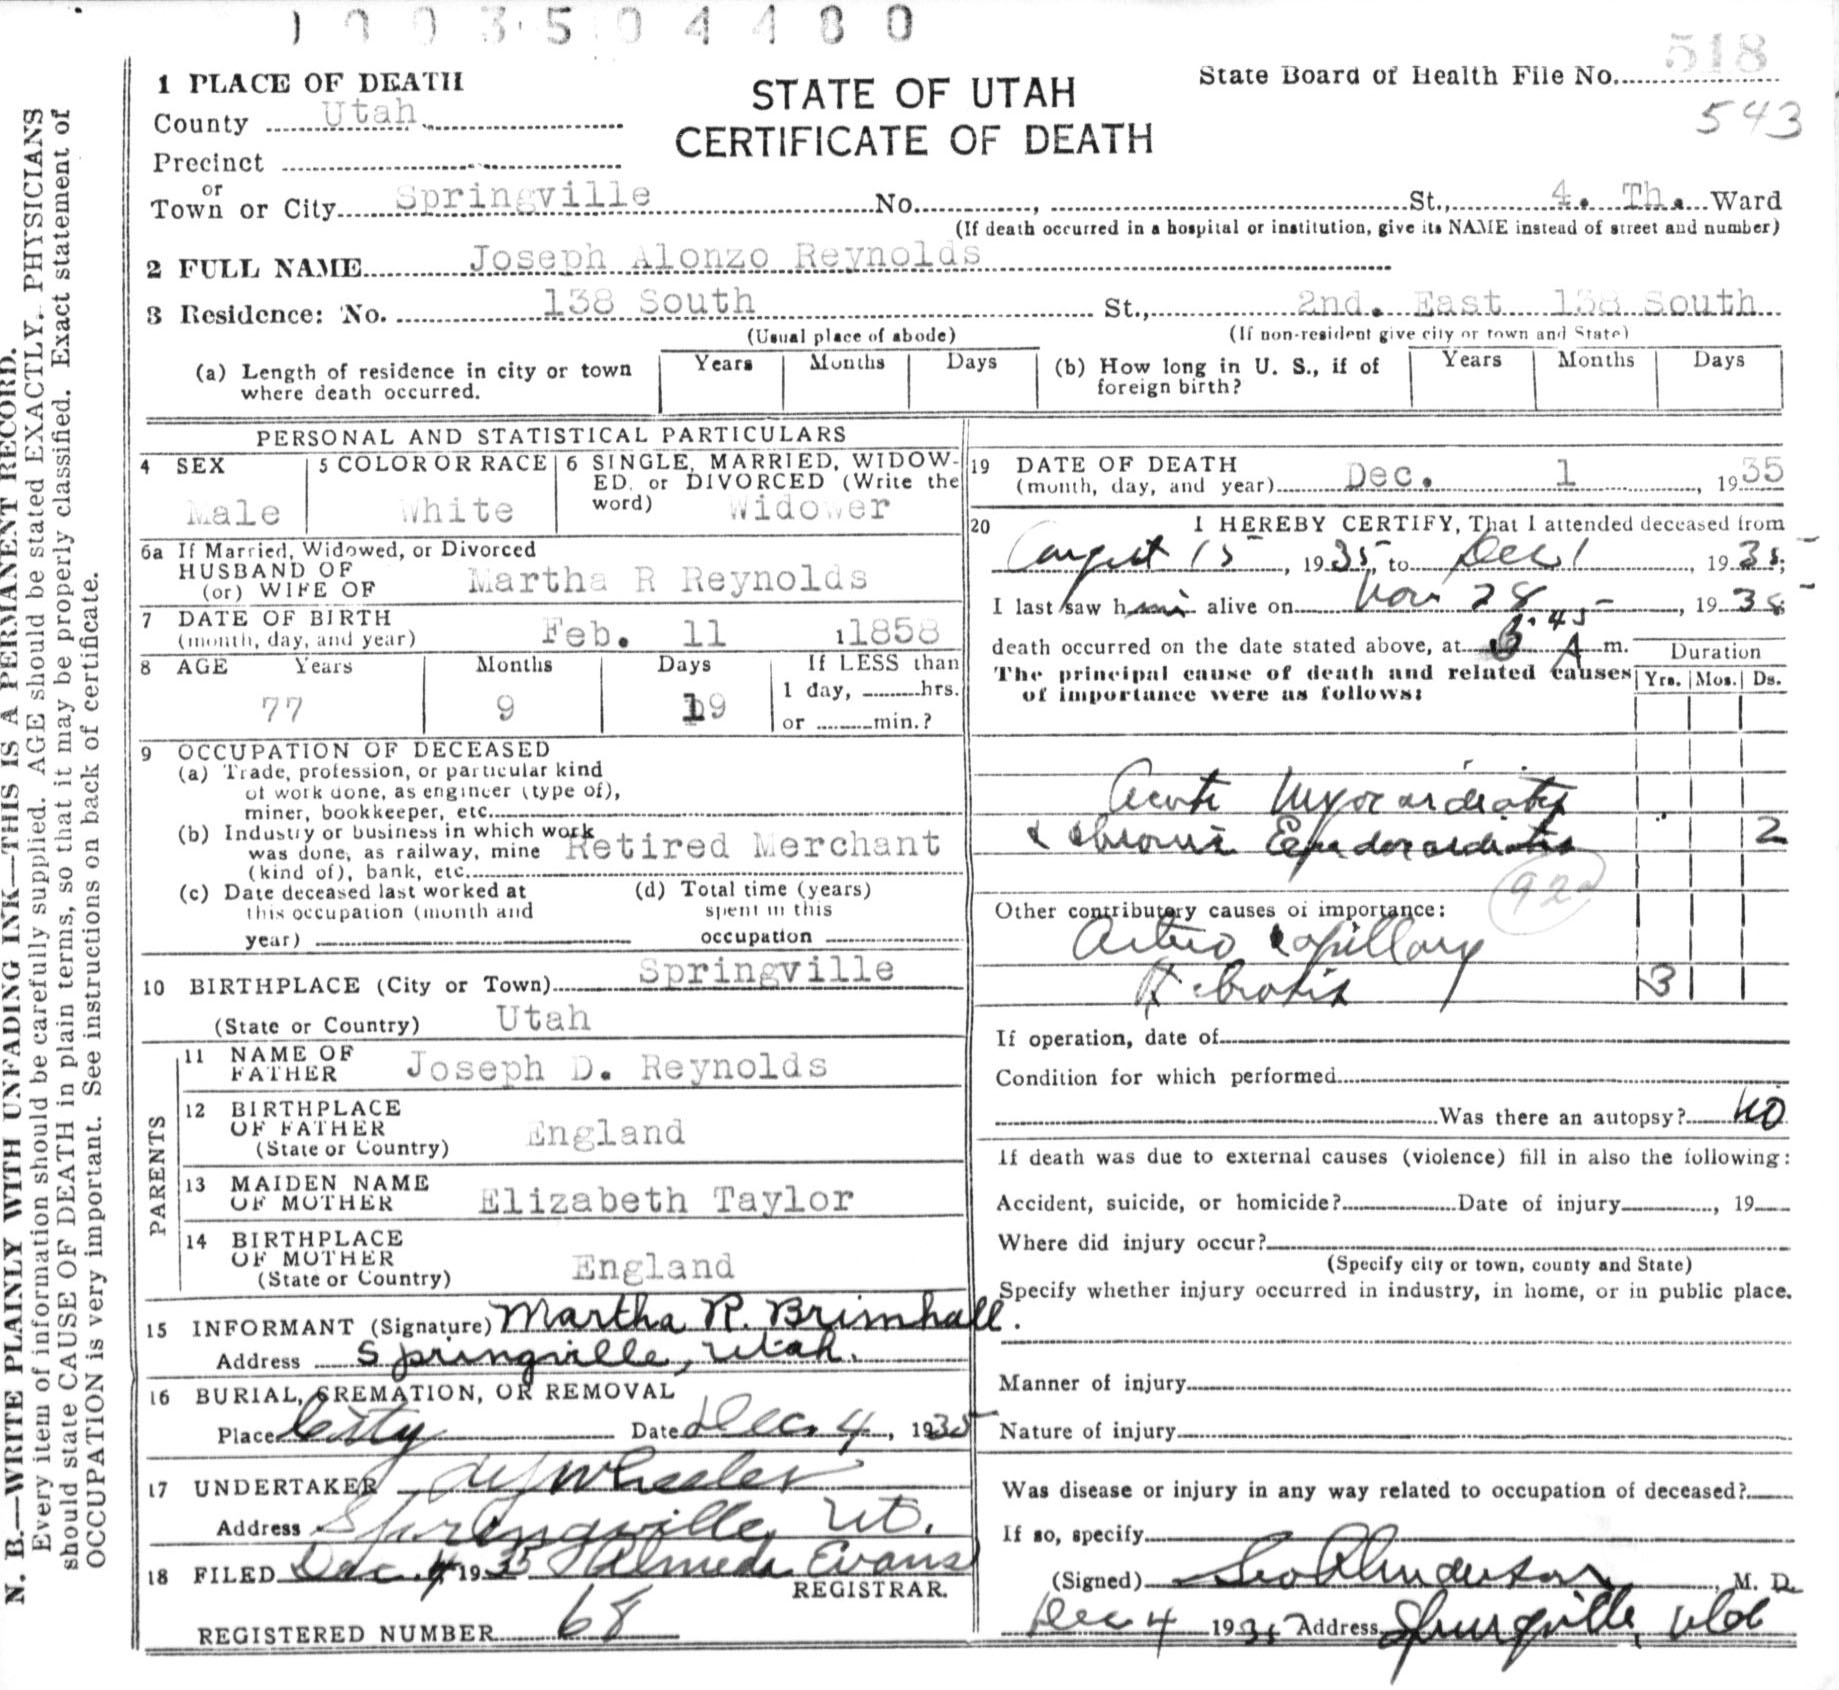 1003504480
1 PLACE OF DEATH
STATE OF UTAH
CERTIFICATE OF DEATH
State Board of Health File No. 518
543
County Utah
Precinct
or
Town or City Springville No. , St., 4. Th. Ward
(If death occurred in a hospital or institution, give its NAME instead of street and number)
2 FULL NAME Joseph Alonzo Reynolds
3 Residence: No. 138 South St., 2nd. East 138 South
(Usual place of abode) (If non-resident give city or town and State)
(a) Length of residence in city or town where death occurred. Years Months Days (b) How long in U. S., if of foreign birth? Years Months Days
PERSONAL AND STATISTICAL PARTICULARS
4 SEX
Male
5 COLOR OR RACE
White
6 SINGLE, MARRIED, WIDOW-
ED, or DIVORCED (Write the
word) Widower
6a If Married, Widowed, or Divorced
HUSBAND OF
(or) WIFE OF Martha R Reynolds
7 DATE OF BIRTH
(month, day, and year) Feb. 11 1 1858
8 AGE Years Months Days If LESS than
1 day, hrs.
77 9 19 or min.?
9 OCCUPATION OF DECEASED
(a) Trade, profession, or particular kind
of work done, as engineer (type of),
miner, bookkeeper, etc.
(b) Industry or business in which work
was done, as railway, mine Retired Merchant
(kind of), bank, etc.
(c) Date deceased last worked at
this occupation (month and
year)
(d) Total time (years)
spent in this
occupation
10 BIRTHPLACE (City or Town) Springville
(State or Country) Utah
PARENTS
11 NAME OF
FATHER Joseph D. Reynolds
12 BIRTHPLACE
OF FATHER England
(State or Country)
13 MAIDEN NAME
OF MOTHER Elizabeth Taylor
14 BIRTHPLACE
OF MOTHER England
(State or Country)
15 INFORMANT (Signature) Martha R. Brimhall.
Address Springville, Utah.
16 BURIAL, CREMATION, OR REMOVAL
Place City Date Dec. 4, 1935
17 UNDERTAKER Wheeler
Address Springville Ut.
18 FILED Dec. 4 1935 Almeda Evans
REGISTRAR.
REGISTERED NUMBER 68
19 DATE OF DEATH
(month, day, and year) Dec. 1, 1935
20 I HEREBY CERTIFY, That I attended deceased from
August 15, 1935, to Dec 1, 1935;
I last saw him alive on Nov 28, 1935
death occurred on the date stated above, at 45 A m.
The principal cause of death and related causes
of importance were as follows:
Duration
Yrs. Mos. Ds.
Acute Myocardiatis
& chronic Endocardiatis 2
92
Other contributory causes of importance:
Arterio capillary
fibrosis 3
If operation, date of
Condition for which performed
Was there an autopsy? no
If death was due to external causes (violence) fill in also the following:
Accident, suicide, or homicide? Date of injury , 19
Where did injury occur?
(Specify city or town, county and State)
Specify whether injury occurred in industry, in home, or in public place.
Manner of injury
Nature of injury
Was disease or injury in any way related to occupation of deceased?
If so, specify
(Signed) Geo A Anderson, M. D.
Dec 4 1935 Address Springville, Utah
N. B.—WRITE PLAINLY WITH UNFADING INK—THIS IS A PERMANENT RECORD.
Every item of information should be carefully supplied. AGE should be stated EXACTLY. PHYSICIANS
should state CAUSE OF DEATH in plain terms, so that it may be properly classified. Exact statement of
OCCUPATION is very important. See instructions on back of certificate.